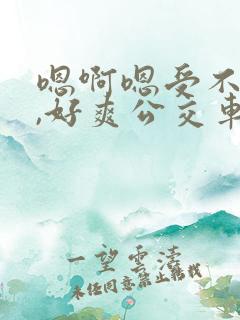 嗯啊嗯受不
,好爽公交车
一望云涛
未经同意禁止转载